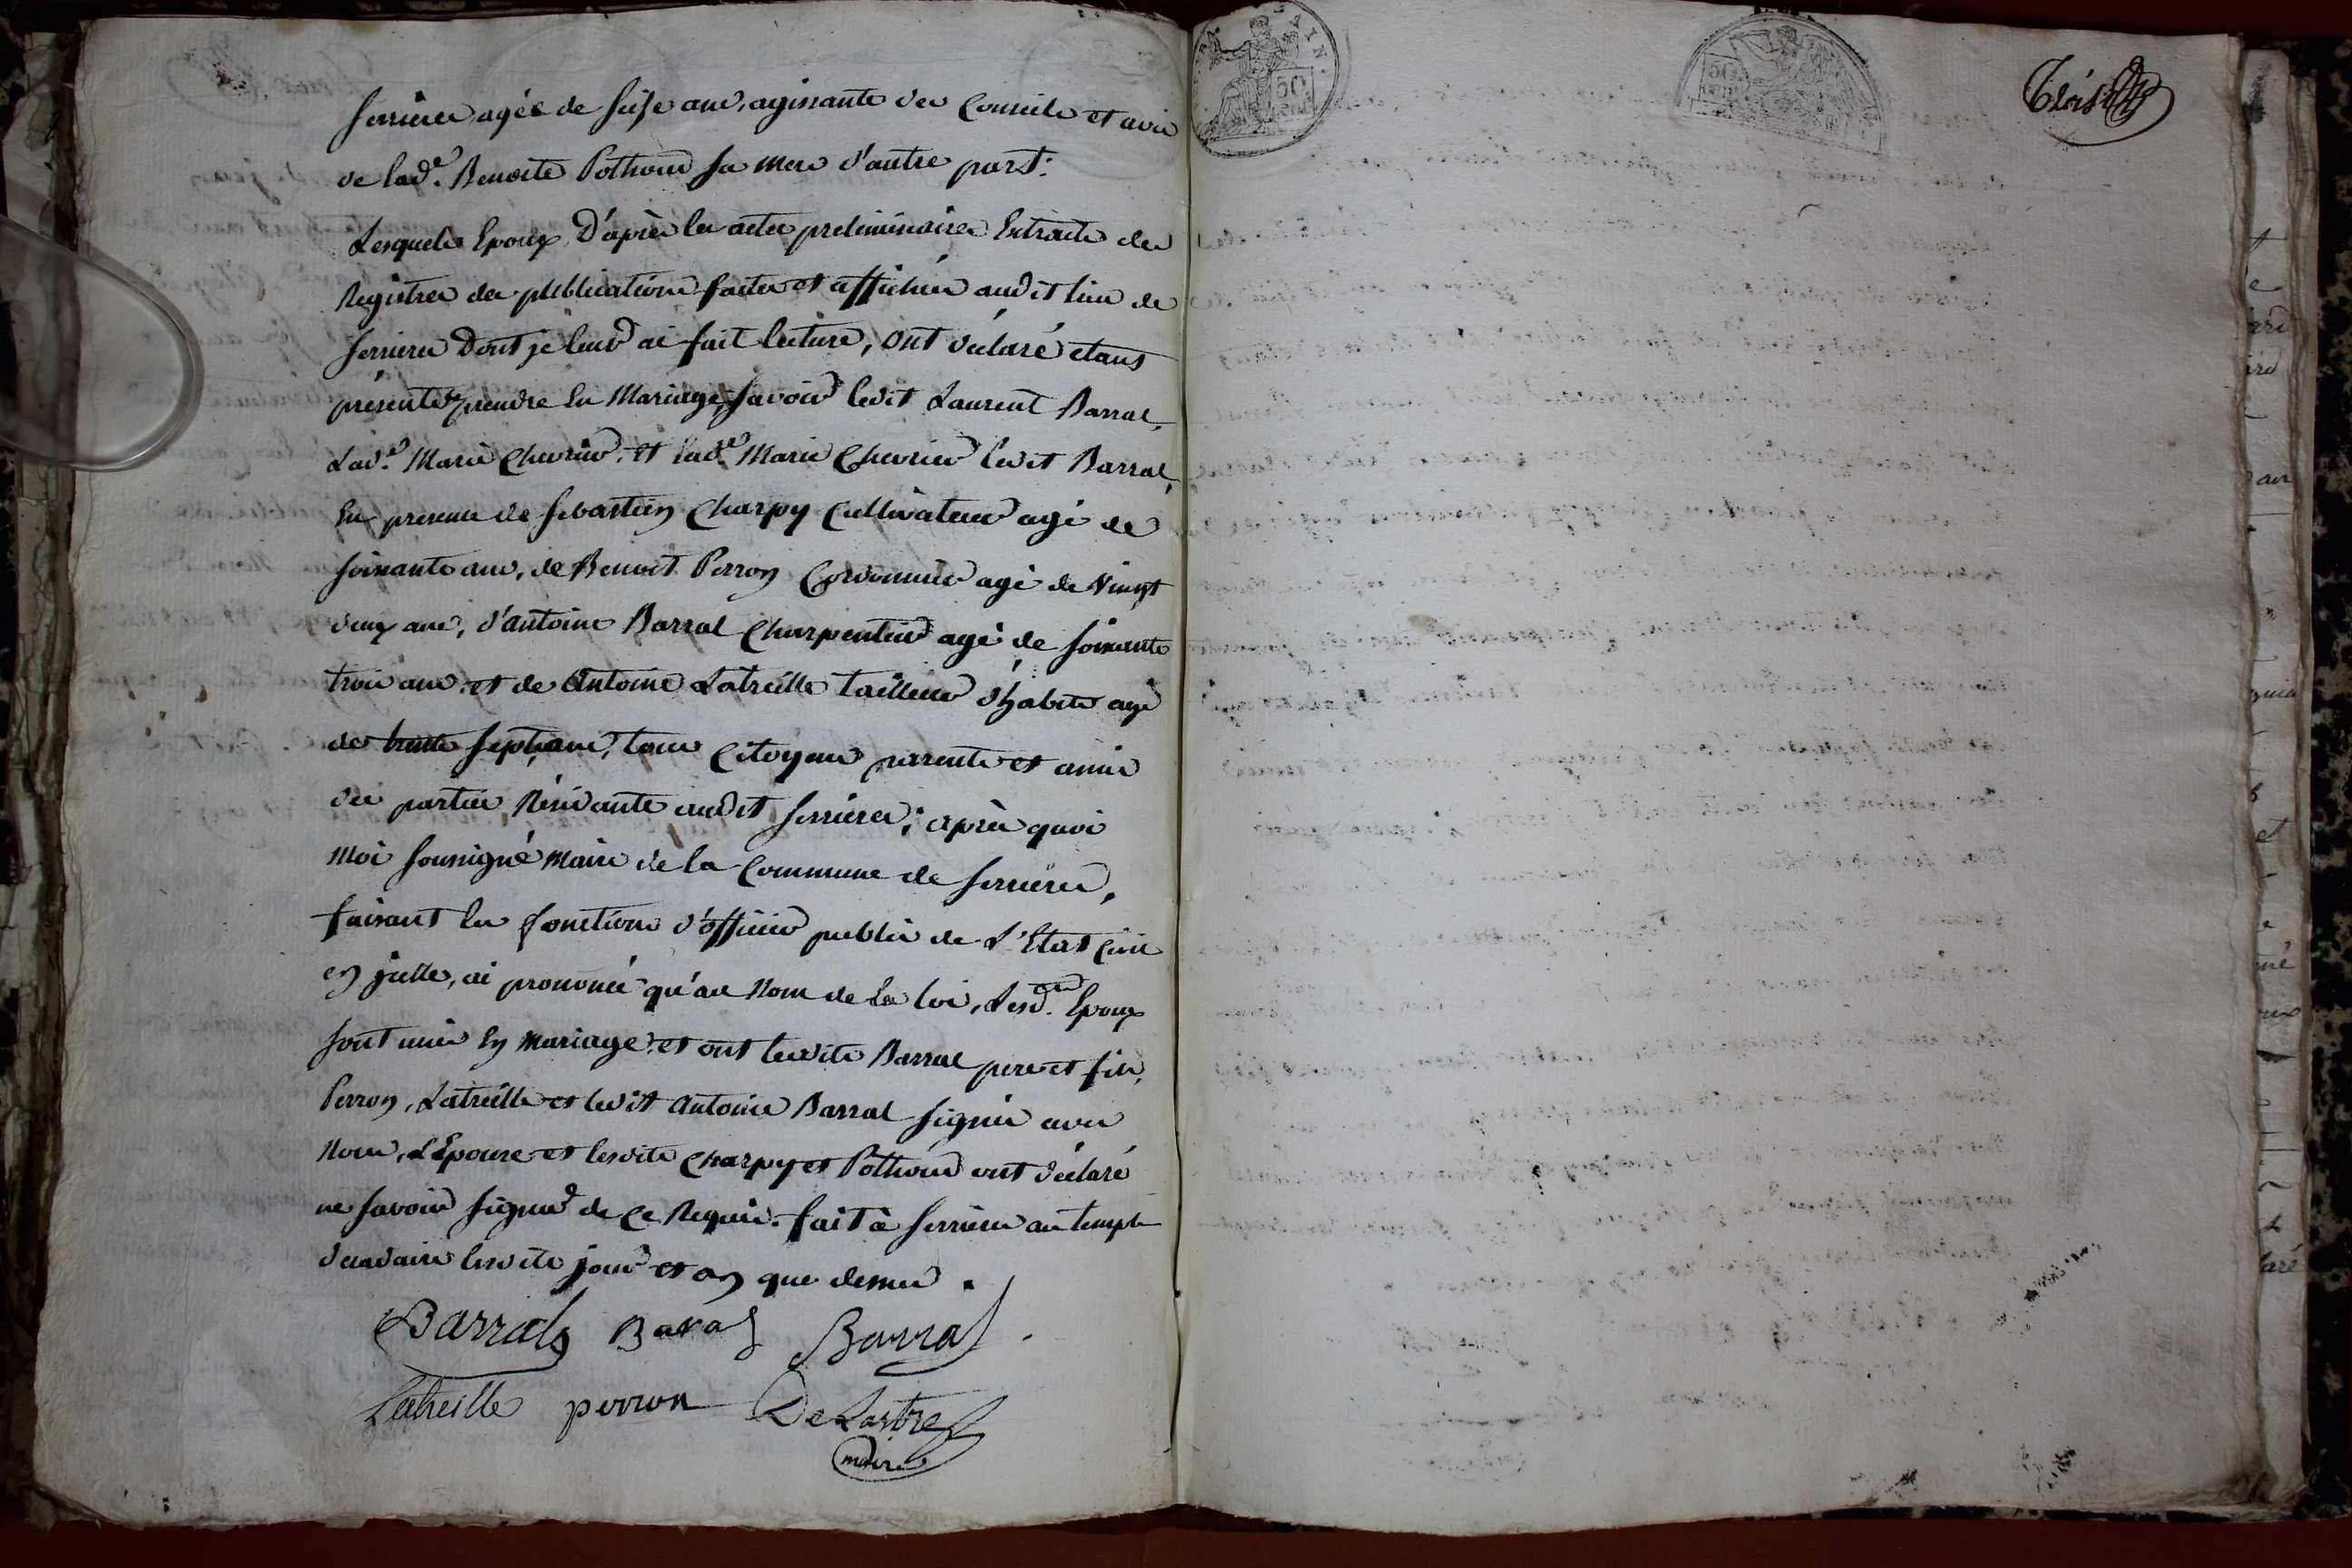 Serrieres agée de seize ans, agissante des Conseils et avis
de lad.e Benoite Pothoud sa mere d'autre part.
Lesquels Epoux D'après les actes preliminaires Extraits des
Registres des publications faites et affichées audit lieu de
Serrieres Dont je leur ai fait lecture, ont déclaré étans
présents prendre En Mariage, savoir ledit Laurent Barral,
Lad.e Marie Chevrier. et lad.e Marie Chevrier ledit Barral,
En presence de Sebastien Charpy Cultivateur agé de
soixante ans, de Benoit Perron Cordonnier agé de Vingt
deux ans, d'antoine Barral Charpentier agé de soixante
trois ans. et de Antoine Latreille tailleur d'habits agé
de trente sept ans, tous Citoyens parents et amis
des parties Résidants audit Serrieres; après quoi
Moi soussigné Maire de la Commune de Serrieres,
faisant les fonctions d'officier public de L'Etat Civil
en jcelle, ai prononcé qu'au Nom de La loi, Lesd. Epoux
sont unis En Mariage. et ont lesdits Barral pere et fils,
Perron, Latreille et ledit Antoine Barral signés avec
Nous, L'Epouse et lesdits Charpy et Pothoud ont déclaré
ne savoir signer de ce Requis. fait à Serrieres au temple
decadaire lesdits jour et an que dessus.
Barral Baral Barral
Latreille perron DeLastre
maire
50
50